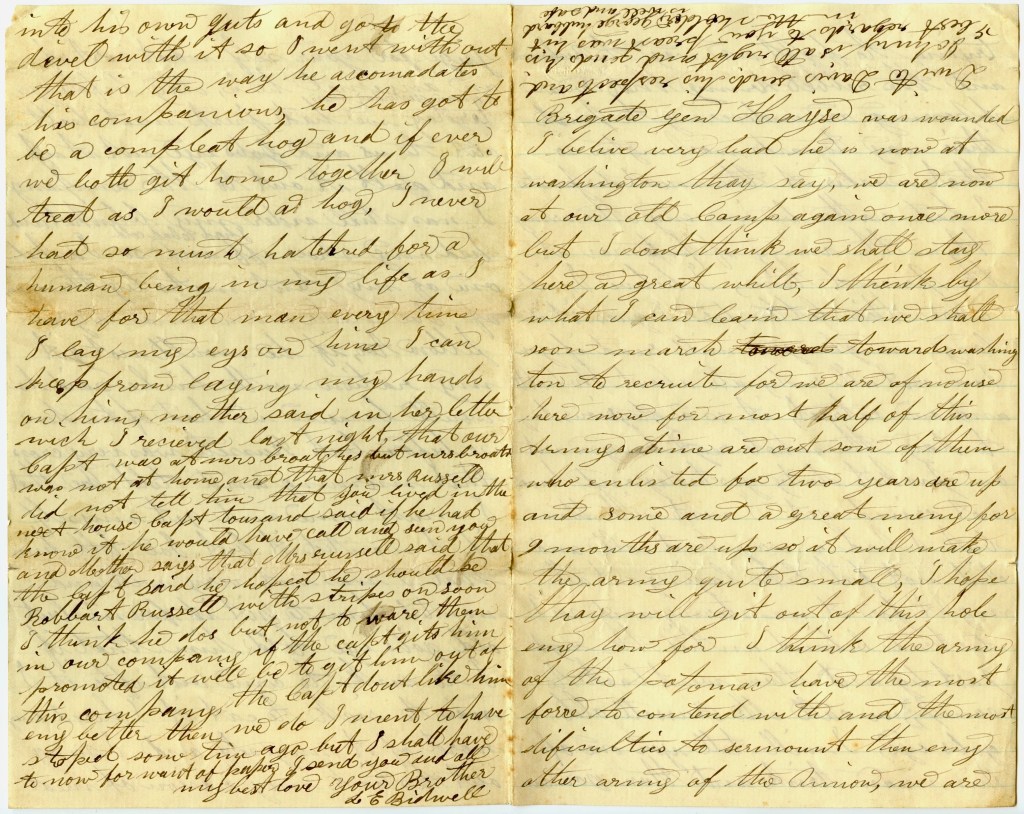 into his own guts and go to the
divel with it so I went without
that is the way he accomadates
his companions, he has got to
be a compleat hog and if ever
we both git home together I will
treat as I would a hog, I never
had so much hatered for a
human being in my life as I
have for that man every time
I lay my eys on him I can
keep from laying my hands
on him, mother said in her letter
wich I recieved last night, that our
Capt was at mrs broatches but mrs broatch
was not at home and that mrs Russell
did not tell him that you lived in the
next house Capt tousand said if he had
know it he would have call and seen you
and Mother says that Mrs russell said that
the Capt said he hopeat he should se
Robbart Russell with stripes on soon
I think he dos but not to ware them
in our company if the capt gits him
promoted it will be to git him out of
this company the Capt dont like him
eny better then we do I ment to have
stopet some time ago but I shall have
to now for want of paper I send you and all
my best love your Brother
L E Bidwell
Dwite Davis sends his respects and
Johny is all right and sends his
best regards to you breast was hit
in the sholder george hubbard
is well and safe
Brigade Gen Hayse was wounded
I belive very bad he is now at
washington thay say, we are now
at our old Camp again once more
but I dont think we shall stay
here a great whilt, I think by
what I can learn that we shall
soon march towards towards washing
ton to recruit for we are of no use
here now for most half of this
armys time are out som of them
who enlisted for two years are up
and some and a great meny for
9 months are up so it will make
the army quite small, I hope
thay will git out of this hole
eny how for I think the army
of the potomac have the most
force to contend with and the most
dificulties to sermount then eny
other army of the Union, we are